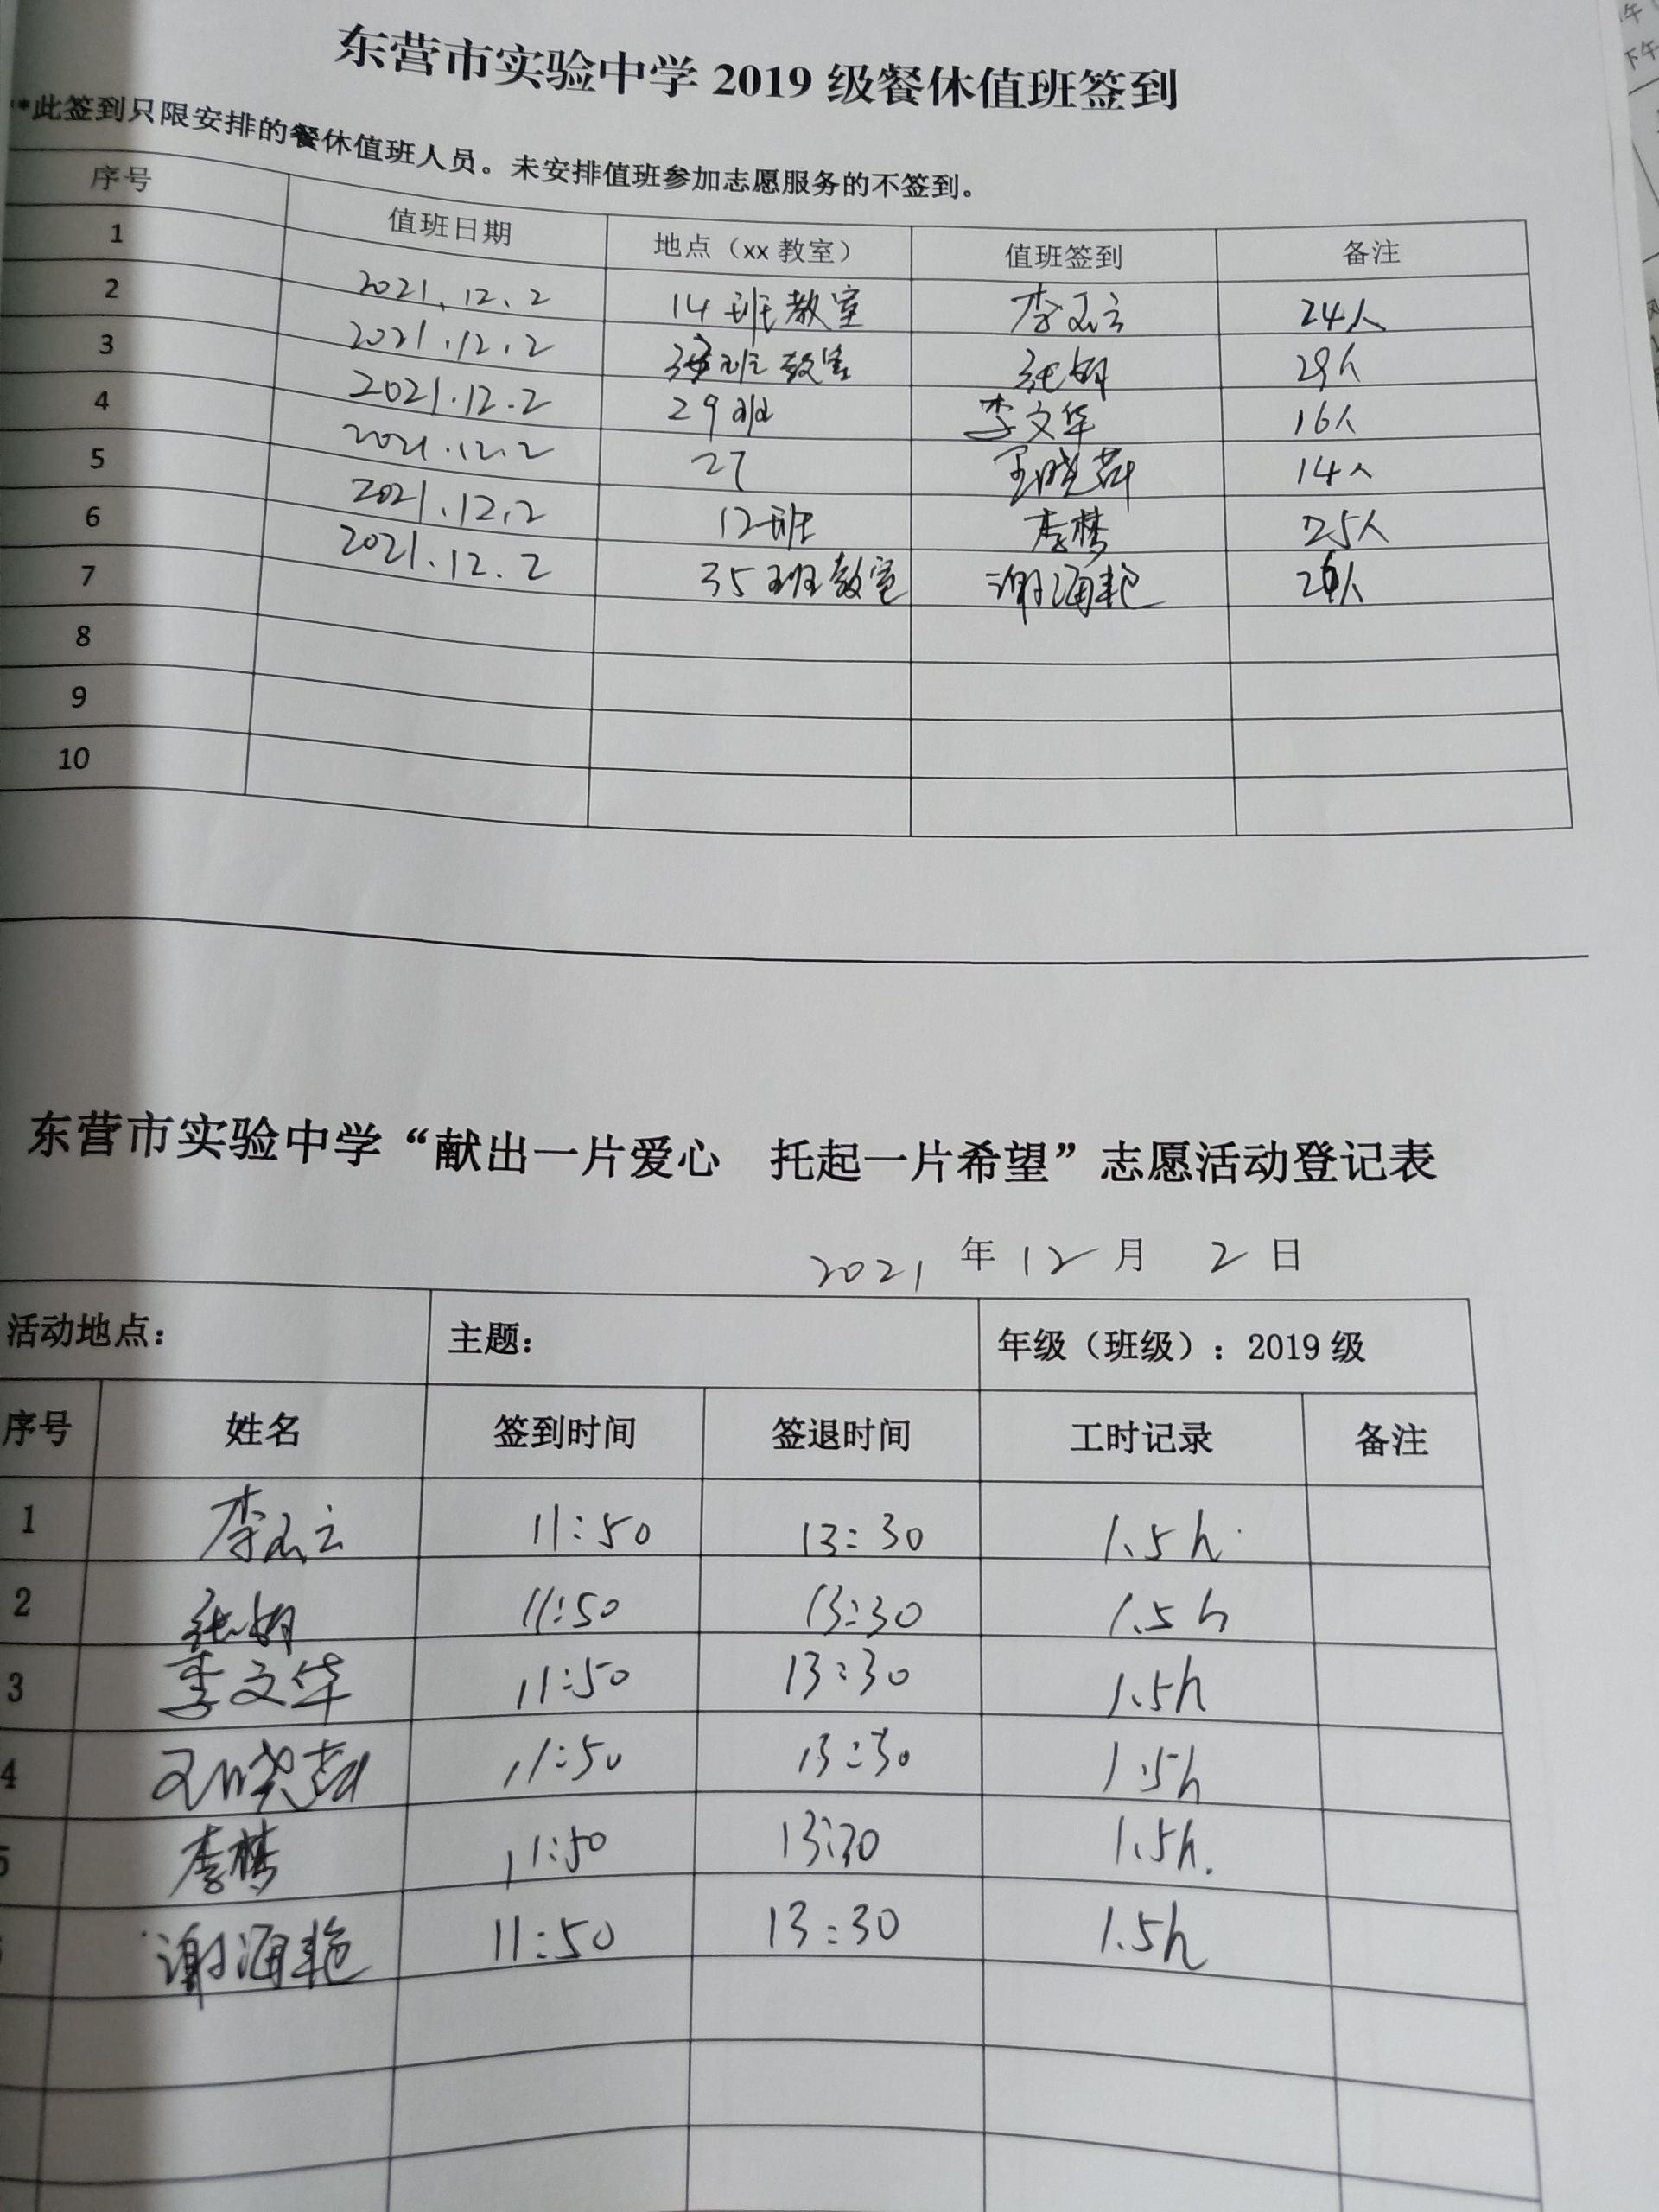 东营市实验中学 2019 级餐休值班签到
**此签到只限安排的餐休值班人员。未安排值班参加志愿服务的不签到。
序号 值班日期 地点（xx 教室） 值班签到 备注
1 2021.12.2 14班教室 24人
2 2021.12.2 班教室 29人
3 2021.12.2 29班 李文华 16人
4 2021.12.2 27 王晓燕 14人
5 2021.12.2 12班 李梦 25人
6 2021.12.2 35班教室 谢海艳
7
8
9
10
东营市实验中学“献出一片爱心 托起一片希望”志愿活动登记表
2021 年 12 月 2 日
活动地点： 主题： 年级（班级）：2019 级
序号 姓名 签到时间 签退时间 工时记录 备注
1 11:50 13:30 1.5h
2 11:50 13:30 1.5h
3 李文华 11:50 13:30 1.5h
4 11:50 13:30 1.5h
5 李梦 11:50 13:30 1.5h.
谢海艳 11:50 13:30 1.5h